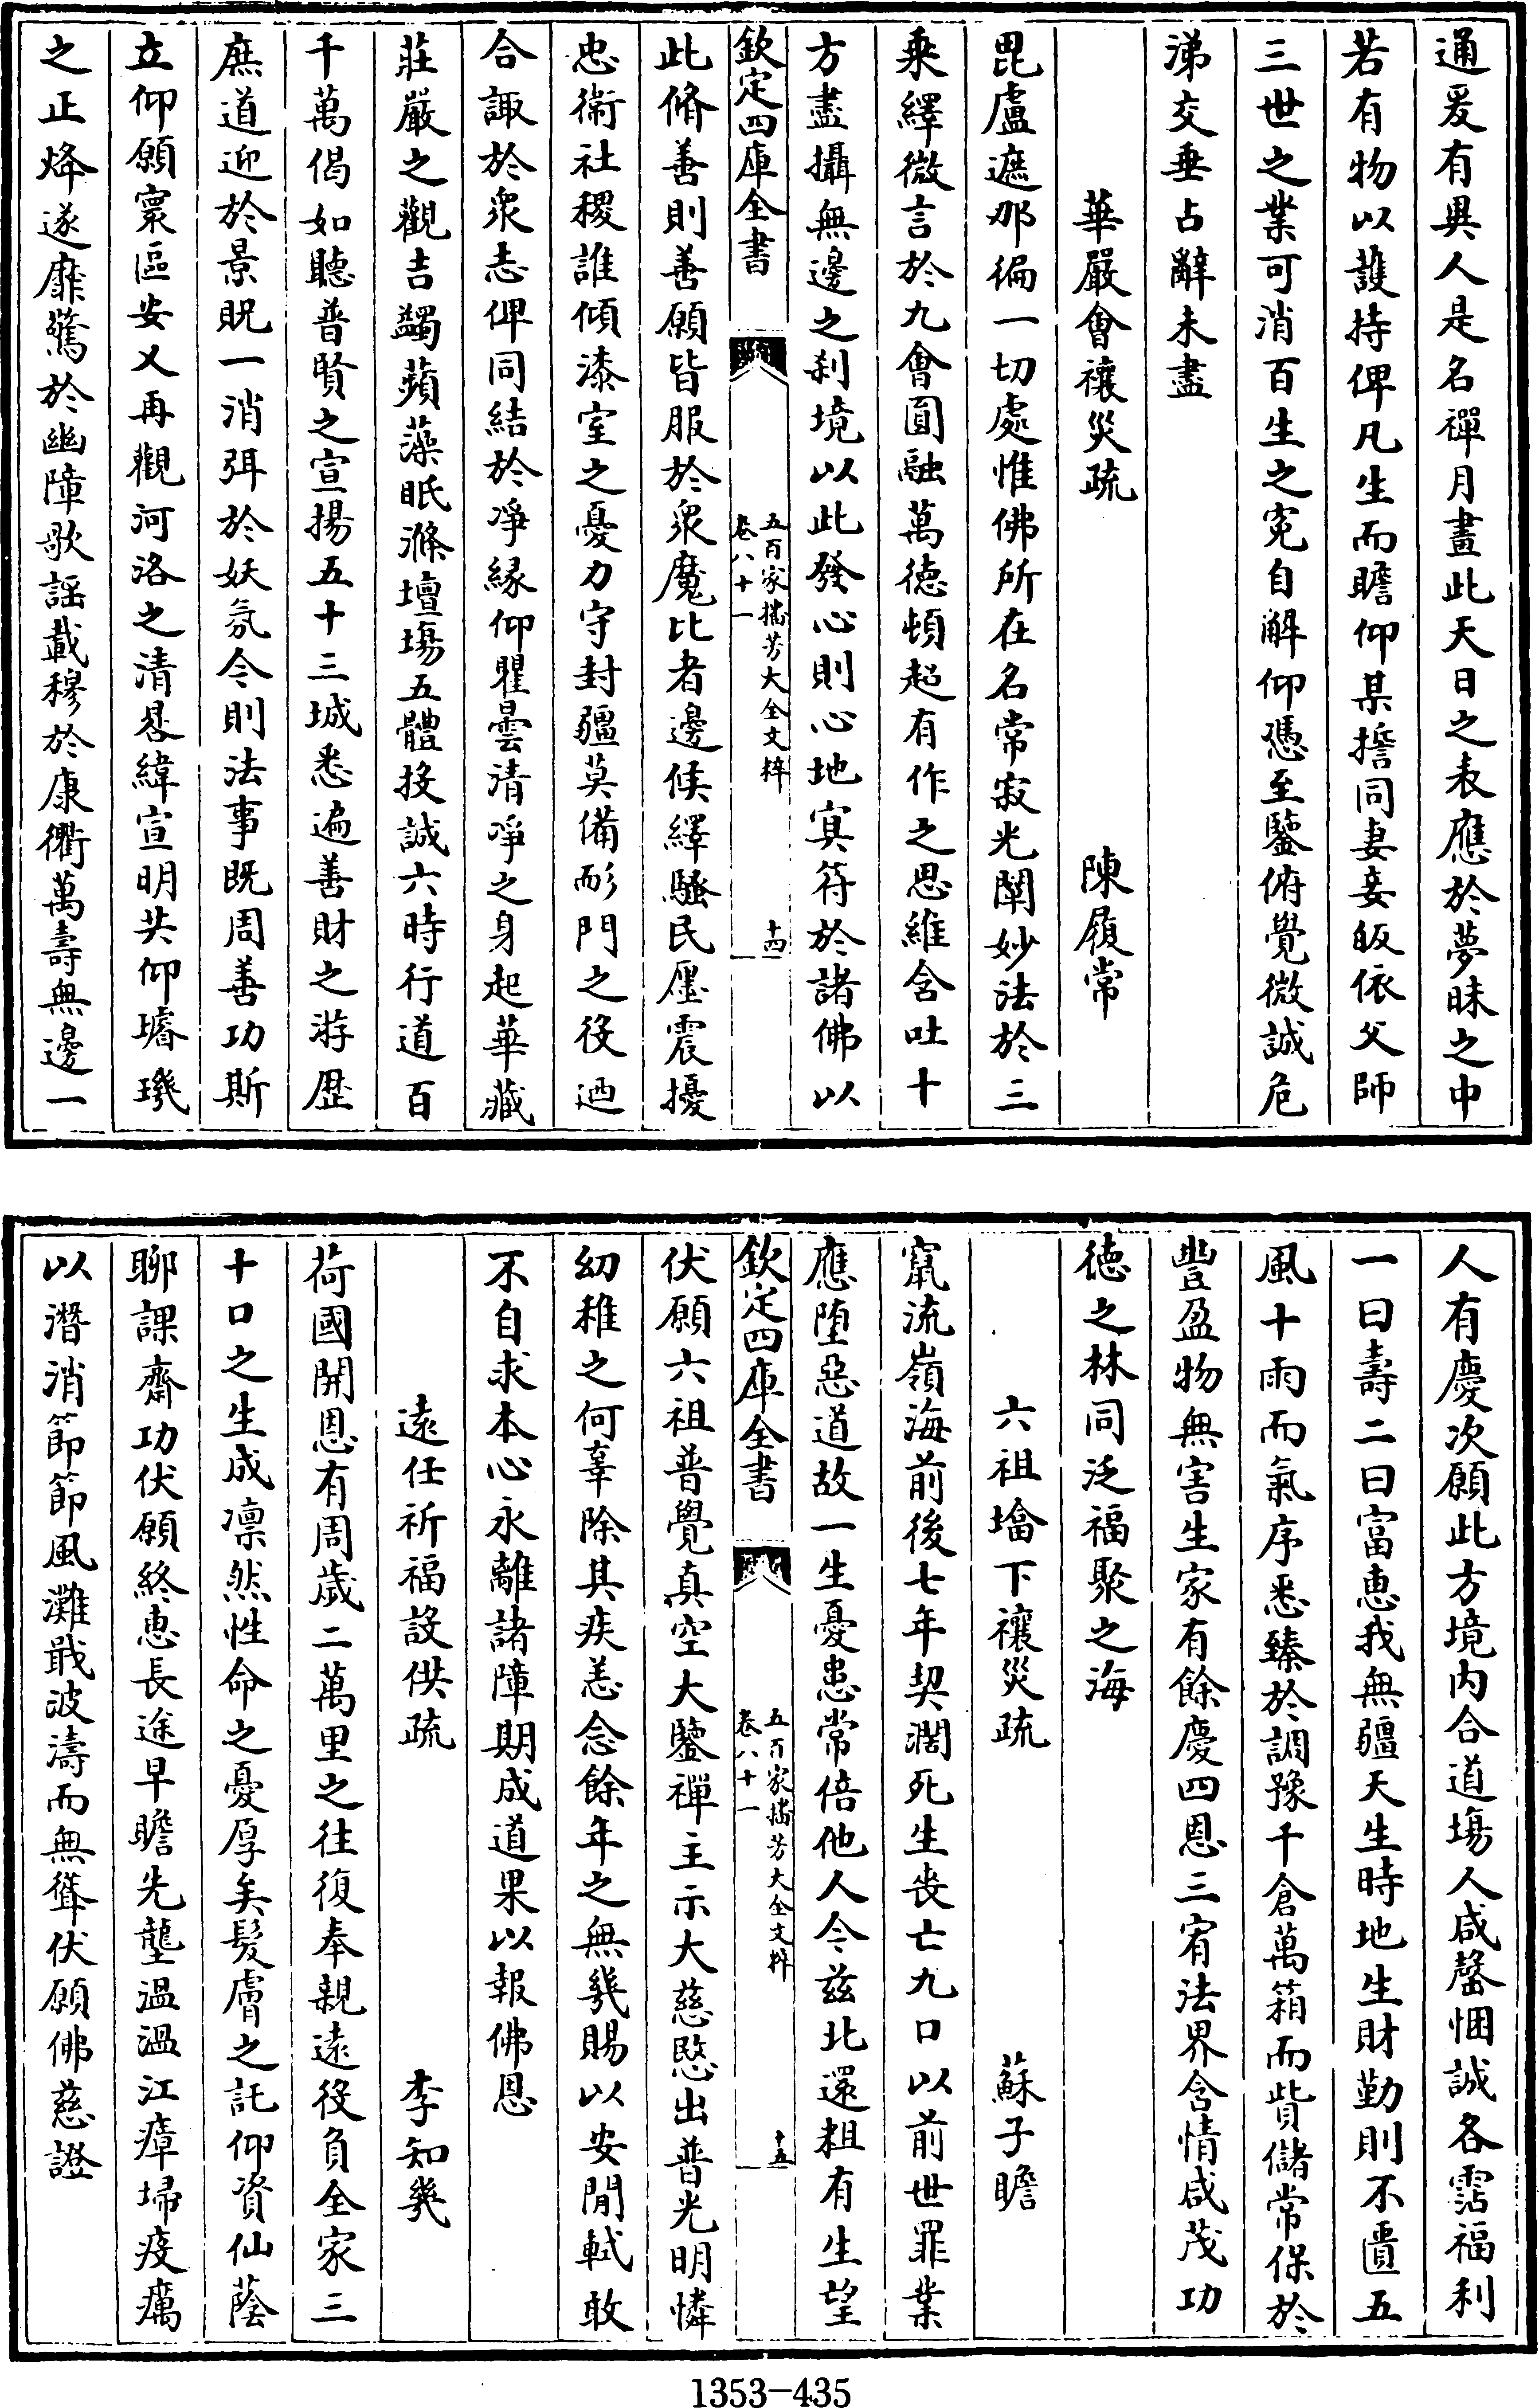 通爰有異人是名禪月畫此天日之表應於夢昧之中
若有物以護持俾凡生而瞻仰某誓同妻妾皈依父師
三世之業可消百生之寃自解仰憑至鑒俯覺微誠危
涕交垂占辭未盡
華嚴會禳災疏　陳履常
毘盧遮那徧一切處惟佛所在名常寂光闡妙法於三
乘繹微言於九會圓融萬徳頓超有作之思維含吐十
方盡攝無邊之刹境以此發心則心地冥符於諸佛以
欽定四庫全書　五百家播芳大全文粹卷八十一　十四
此脩善則善願皆服於衆魔比者邊候繹騷民㕓震擾
忠衛社稷誰傾漆室之憂力守封疆莫備彫門之役迺
合諏於衆志俾同結於凈縁仰瞿曇清凈之身起華藏
莊嚴之觀吉蠲蘋藻眂滌壇塲五體投誠六時行道百
千萬偈如聽普賢之宣揚五十三城悉遍善財之游歴
庶道迎於景貺一消弭於妖氛令則法事既周善功斯
立仰願寰區安乂再觀河洛之清晷緯宣明共仰璿璣
之正烽遂靡驚於幽障歌謡載穆於康衢萬壽無邊一
人有慶次願此方境内合道塲人咸罄悃誠各霑福利
一曰壽二曰富恵我無疆天生時地生財勤則不匱五
風十雨而氣序悉臻於調豫千倉萬箱而貲儲常保於
豐盈物無害生家有餘慶四恩三宥法界含情咸茂功
徳之林同泛福聚之海
六祖塔下禳災疏　蘇子瞻
竄流嶺海前後七年契濶死生喪亡九口以前世罪業
應墮惡道故一生憂患常倍他人今兹北還粗有生望
欽定四庫全書　五百家播芳大全文粹卷八十一　十五
伏願六祖普覺真空大鑒禪主示大慈愍出普光明憐
幼稚之何辜除其疾恙念餘年之無幾賜以安閒軾敢
不自求本心永離諸障期成道果以報佛恩
逺任祈福設供疏　李知幾
荷國開恩有周歲二萬里之往復奉親逺役負全家三
十口之生成凛然性命之憂厚矣髪膚之託仰資仙蔭
聊課齋功伏願終惠長途早瞻先壟温温江瘴埽疫癘
以潛消節節風灘戢波濤而無聳伏願佛慈證
1353-435